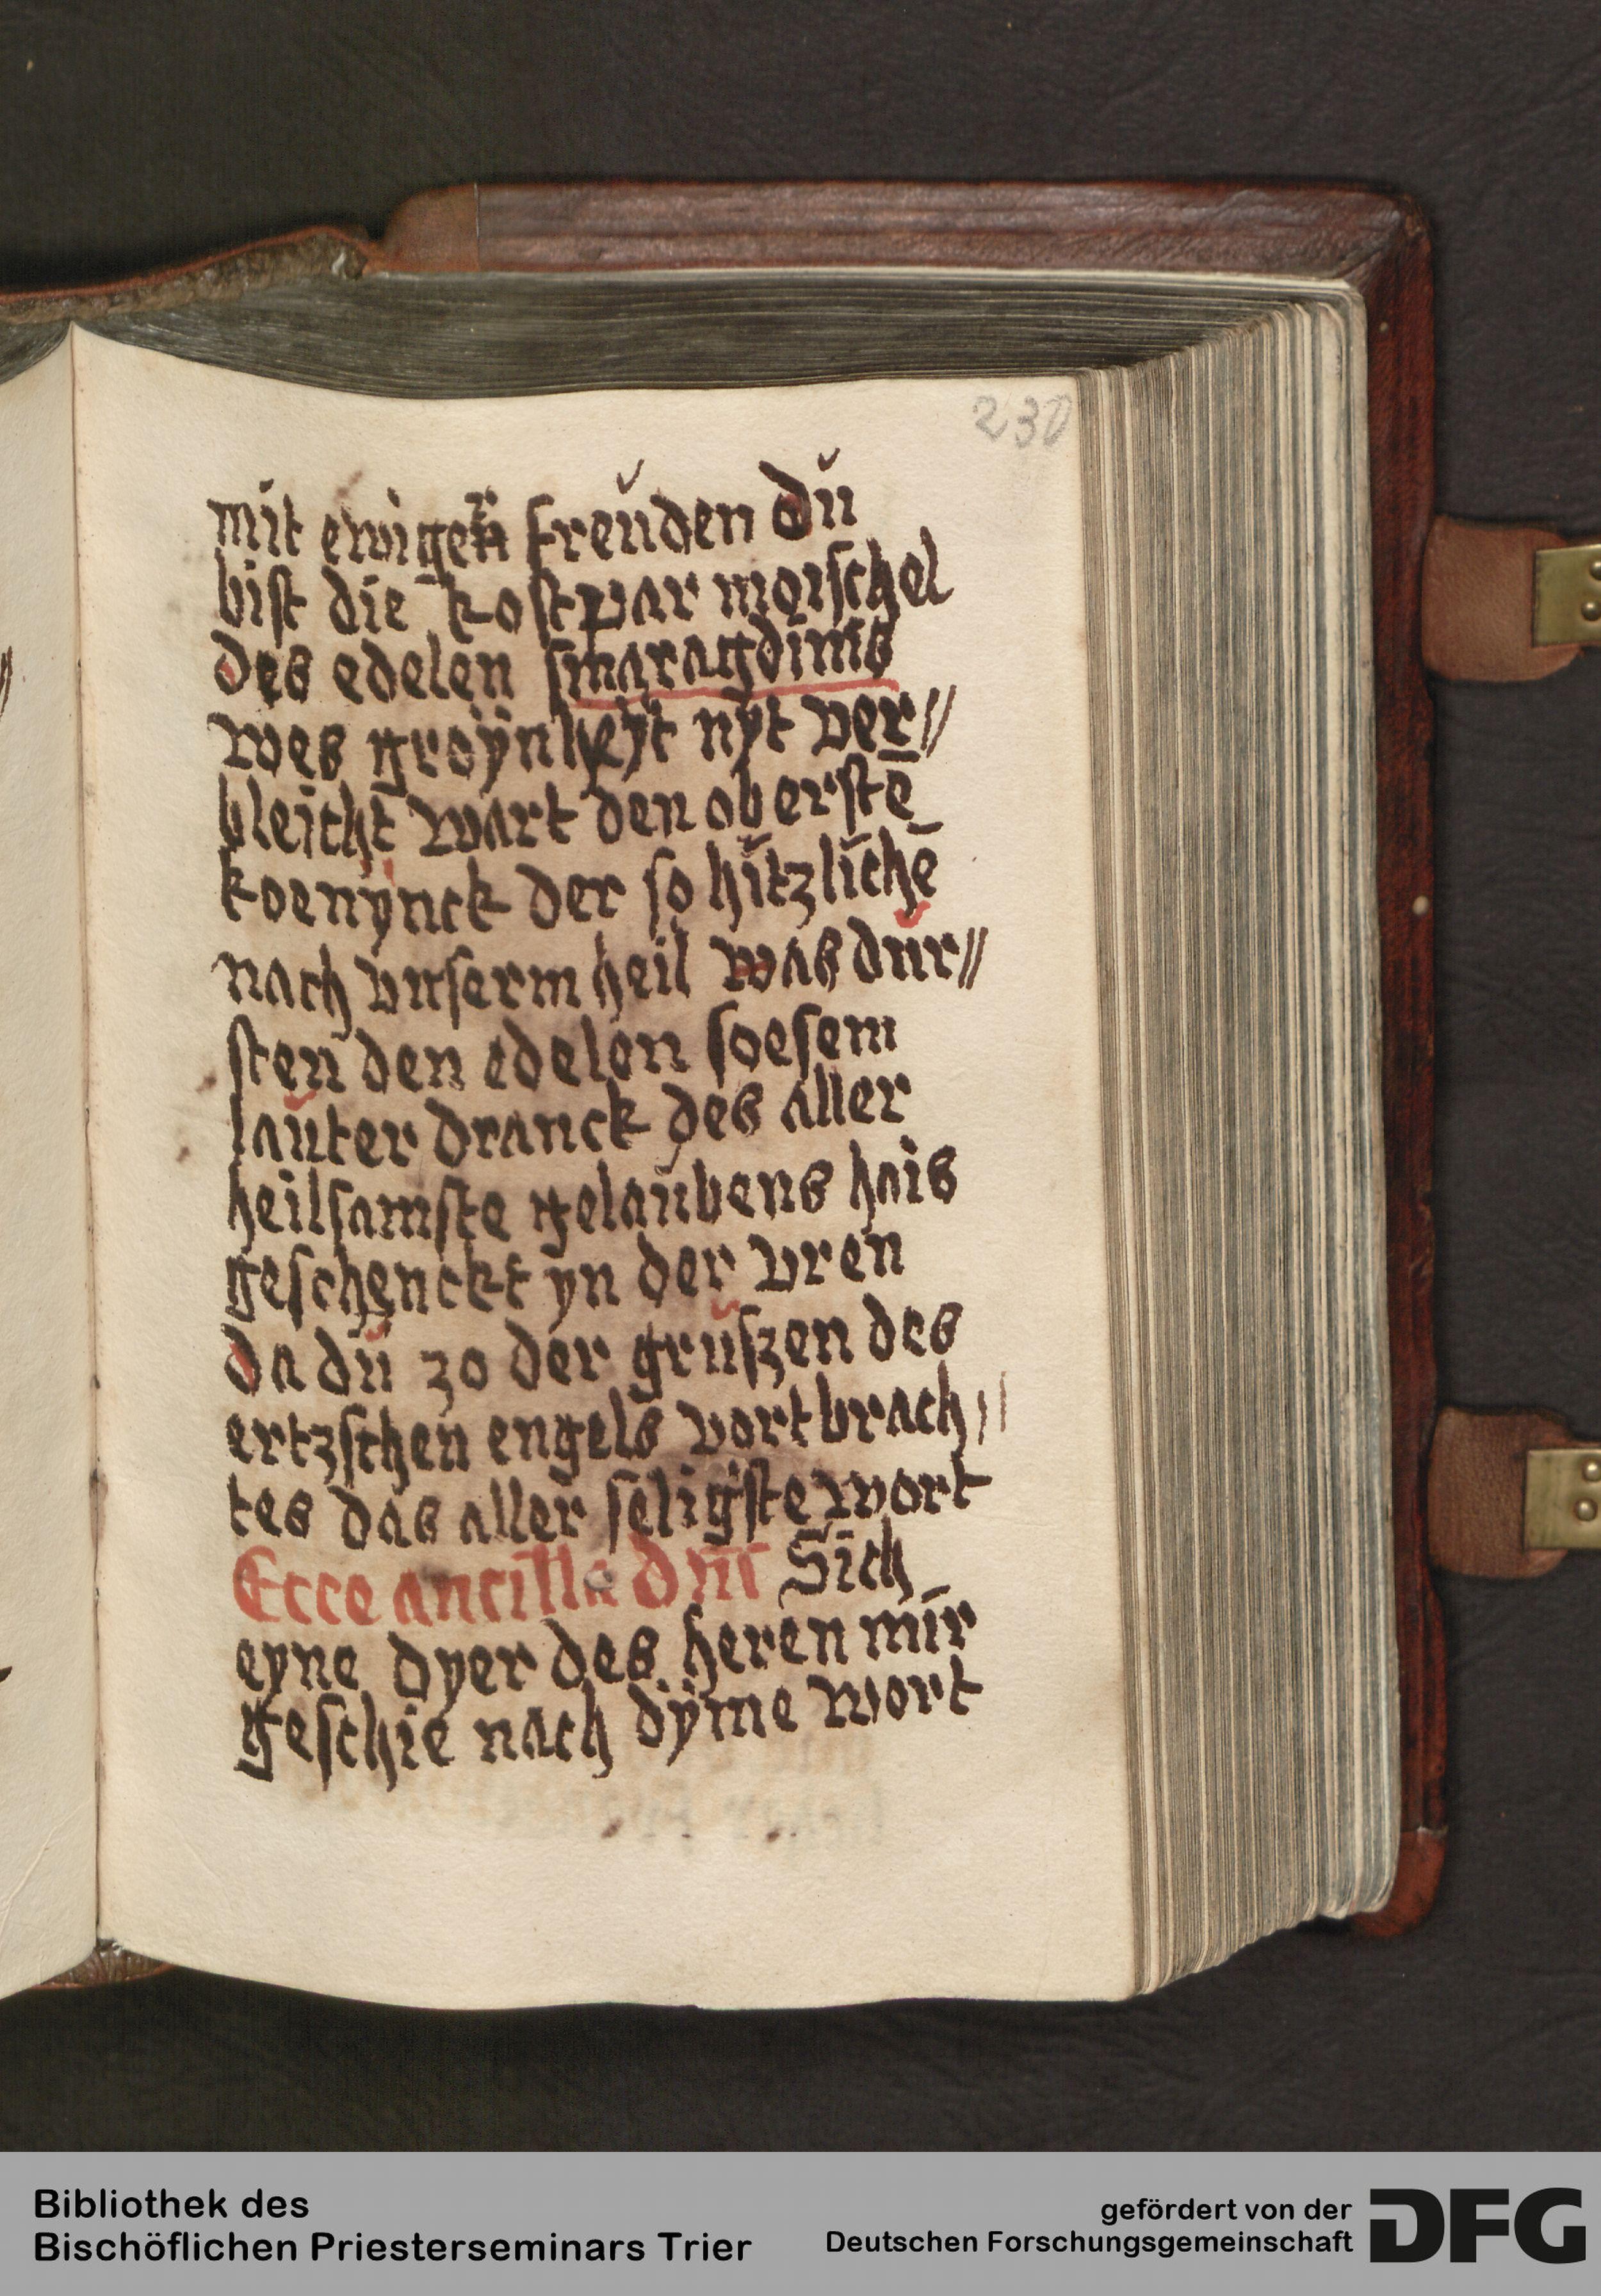 230
mit ewigen freŭden dŭ
bist die kostpar morschel
des edelen smaragdims
wes groÿnheyt nÿt ver//
bleicht wart den oberstē
koenÿnck der so hitzlichē
nach vnserm heil was dur//
sten den edelen soesem
laŭter dranck des aller
heilsamste gelaubens hais
geschenckt yn der vren
da dŭ zo der grŭszen des
ertzschen engels vortbrach//
tes das aller seligste wort
Ecce ancilla dn̄i Sich
eyne dyer des heren mir
geschie nach dÿme wort
Bibliothek des
Bischöflichen Priesterseminars Trier
gefördert von der
Deutschen Forschungsgemeinschaft
DFG